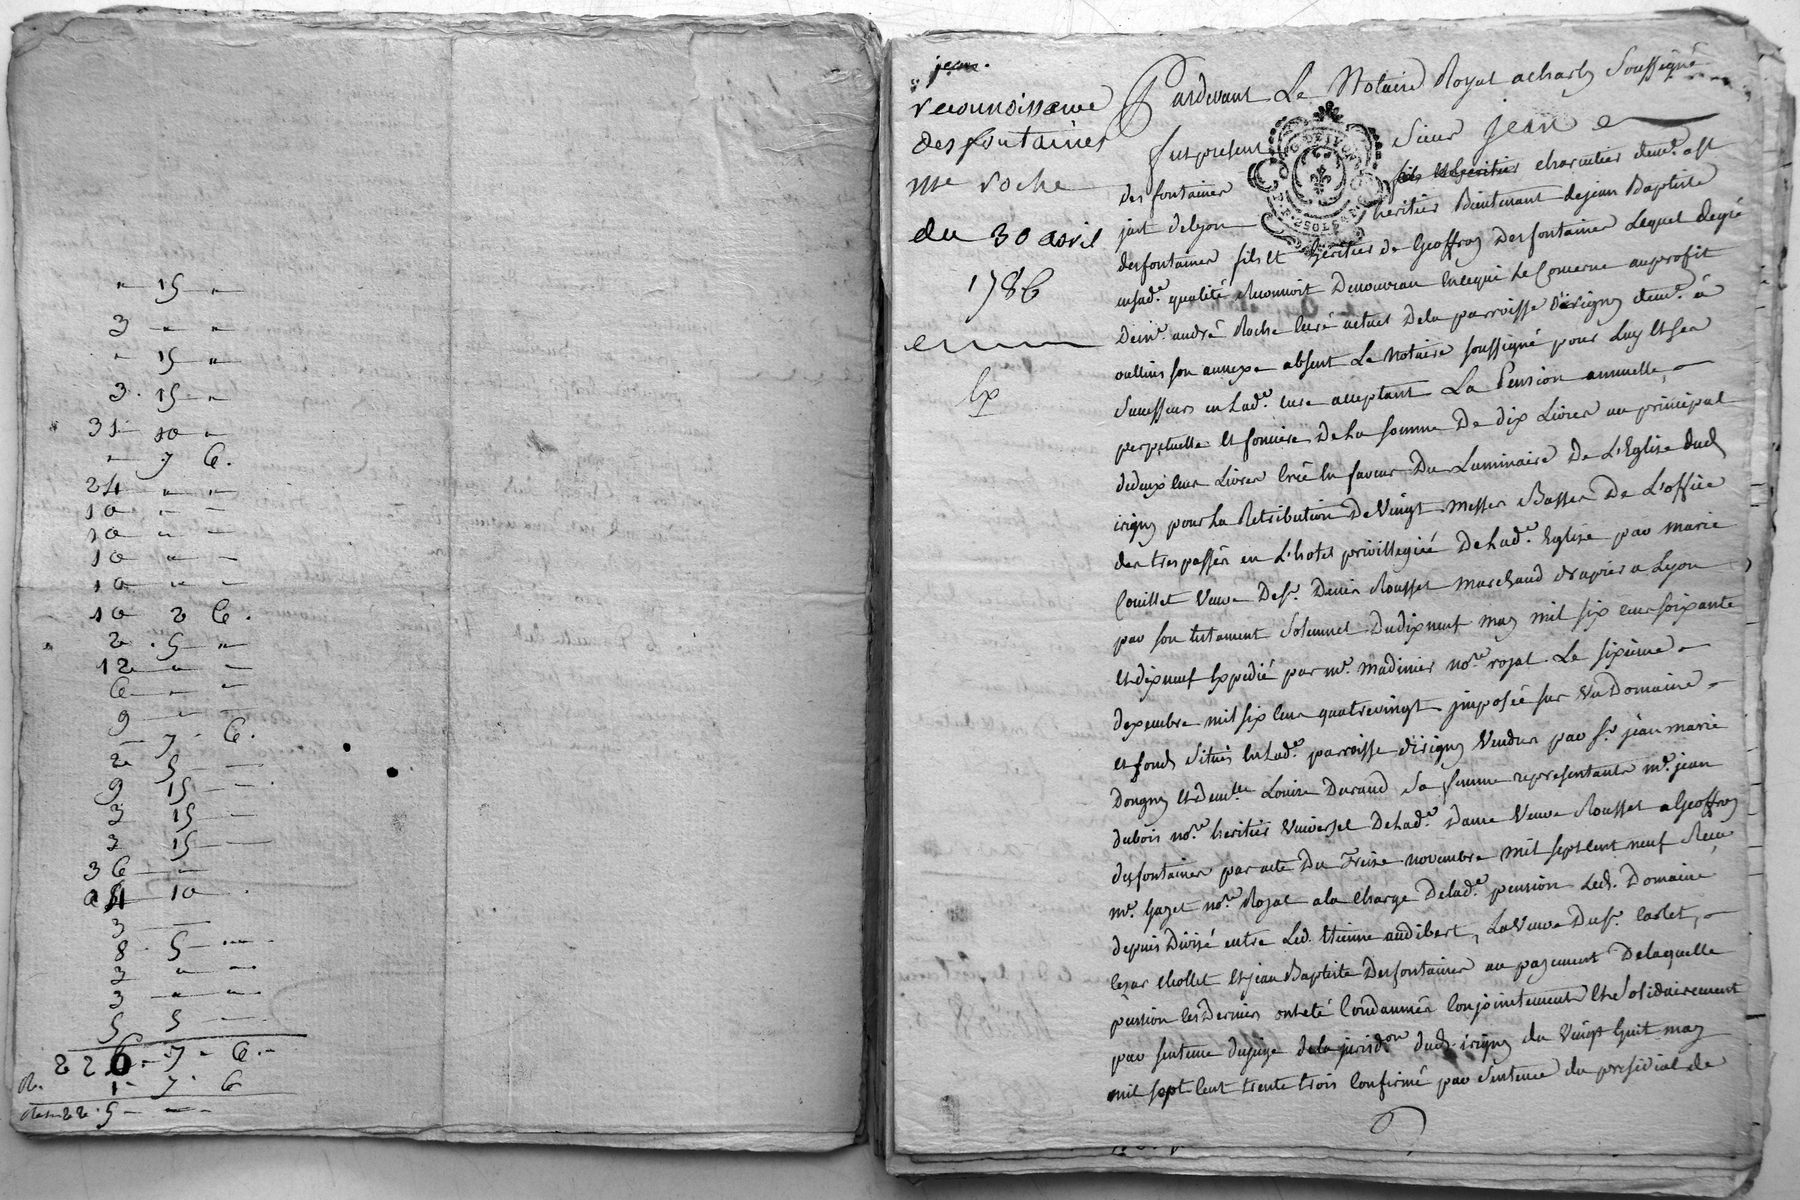 " 15 "
3 " "
" 15 "
3. 15 "
31 10 "
" 7 6.
24 " "
10 " "
10 " "
10 " "
10 " "
10 2 6.
2 . 5 "
12 " "
6 " "
9 "
7 . 6.
2 5
9 15
3 15
3 15
36
10
3
8 . 5
3 "
3 "
5 5
226 . 7 . 6.
1 . 7 . 6
22 . 5
jean.
reconnoissance
desfontaines
Mre roche
du 30 avril
1786
Ex
Pardevant Le Notaire Royal a charly Soussigné
fut présent Sieur jean
desfontaines fils et heritier charcutier demt. a st
just de lyon heritier Bintenant de jean Baptiste
desfontaines fils et heritier de Geoffroy Desfontaines Lequel degré
en sad. qualité Reconnoit Denouveau En ce qui Le Concerne au profit
De mre. andré Roche Curé actuel De la parroisse d'irigny demt. à
oullins son annexe absent Le Notaire soussigné pour Luy Et ses
Successeurs en Lade. cure acceptant La Pension annuelle,
perpetuelle Et fonciere De La somme De dix Livres au principal
de deux cent Livres Créé En faveur Du Luminaire De L'Eglise dud.
irigny pour La Retribution De Vingt Messes Basses De L'office
des trespassés en L'hotel privillegié De Lade. Eglise par Marie
Couillet Veuve De sr. Denis Rousset Marchand drapier a Lyon
par son testament Solemnel Du dix neuf may mil six cent soixante
Et dix neuf Expedié par me. Madinier nore. royal Le sixième
dexembre mil six cent quatrevingt imposée sur Un Domaine
et fonds Situés En Lade. parroisse d'irigny Vendus par sr. jean marie
Dongny Et demlle. Louise Durand Sa femme representants me. jean
dubois nore. heritier Universel De Lade. Dame Veuve Rousset a Geoffroy
desfontaines par acte Du Treise novembre mil sept cent neuf Recu
me. Gayet nore. Royal a la Charge De lade. pension Led. Domaine
depuis Divisé entre Led. Etienne audibert, La Veuve Du sr. Carlet,
Cesar Chollet Et jean Baptiste Desfontaines au payement De laquelle
pension Ces Derniers ont été Condamnés Conjointement Et Solidairement
par sentence du juge de la jurisdon. dud. irigny du Vingt huit may
mil sept Cent trente trois Confirmé par Sentence du presidial de